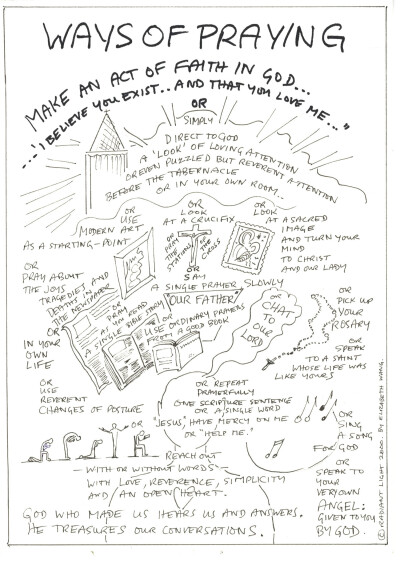 WAYS OF PRAYING
MAKE AN ACT OF FAITH IN GOD...
...'I BELIEVE YOU EXIST.. AND THAT YOU LOVE ME..."
OR
SIMPLY
DIRECT TO GOD
A 'LOOK' OF LOVING ATTENTION
OR EVEN PUZZLED BUT REVERENT ATTENTION
BEFORE THE TABERNACLE
OR IN YOUR OWN ROOM..
OR
USE
MODERN ART
AS A STARTING-POINT
OR
LOOK
AT A CRUCIFIX
OR
PRAY
THE
STATIONS
OF
THE
CROSS
OR
LOOK
AT A SACRED
IMAGE
AND TURN YOUR
MIND
TO CHRIST
AND OUR LADY
OR
PRAY ABOUT
THE JOYS
TRAGEDIES AND
DEATHS IN
THE NEWSPAPER
OR
SAY
A SINGLE PRAYER SLOWLY
"OUR FATHER"
OR
PRAY
AS YOU READ
A SINGLE BIBLE STORY
OR
USE ORDINARY PRAYERS
FROM A GOOD BOOK
OR
CHAT
TO
OUR
LORD
OR
PICK UP
YOUR
ROSARY
OR
SPEAK
TO A SAINT
WHOSE LIFE WAS
LIKE YOURS
OR
IN YOUR
OWN
LIFE
OR
USE
REVERENT
CHANGES OF POSTURE
OR REPEAT
PRAYERFULLY
ONE SCRIPTURE SENTENCE
OR A SINGLE WORD
"JESUS" HAVE MERCY ON ME
OR "HELP ME."
OR
SING
A SONG
FOR GOD
OR
SPEAK TO
YOUR
VERY OWN
ANGEL:
GIVEN TO YOU
BY GOD.
REACH OUT
-WITH OR WITHOUT WORDS-
WITH LOVE, REVERENCE, SIMPLICITY
AND AN OPEN HEART.
GOD WHO MADE US HEARS US AND ANSWERS.
HE TREASURES OUR CONVERSATIONS.
© RADIANT LIGHT 2000. BY ELIZABETH WANG.